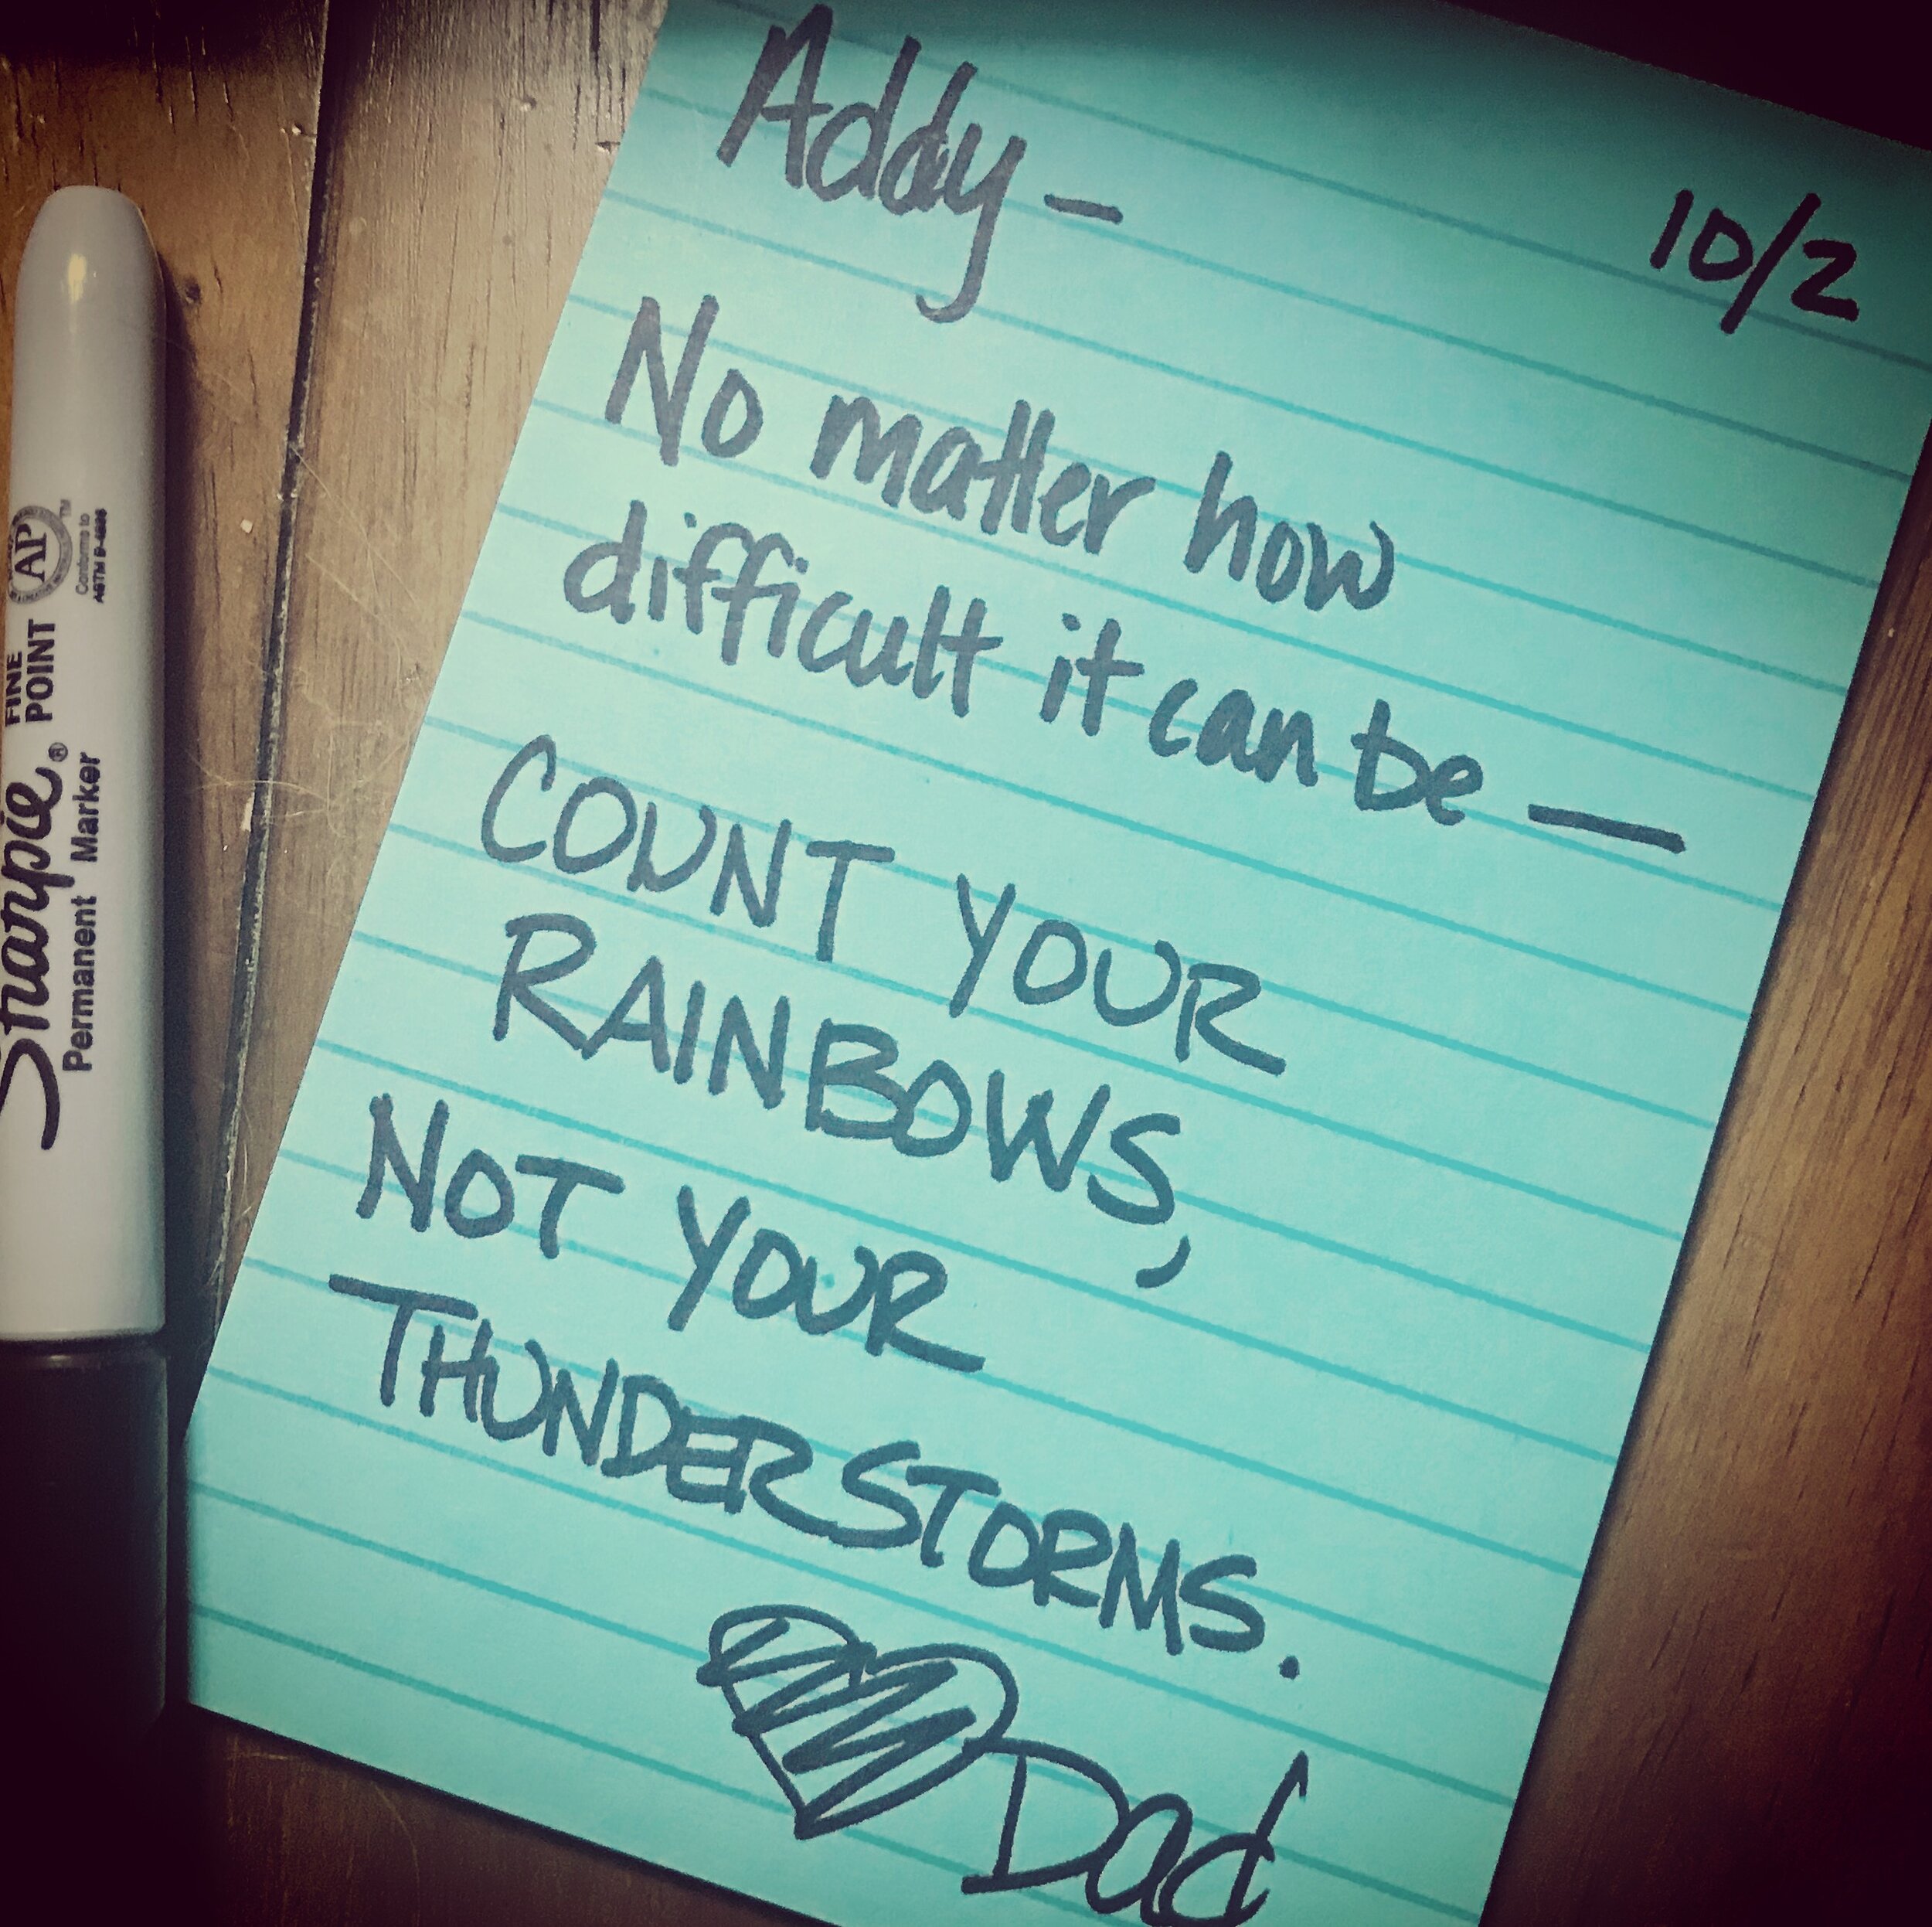 Addy —
10/2
No matter how
difficult it can be —
COUNT YOUR
RAINBOWS,
NOT YOUR
THUNDERSTORMS.
Dad
Sharpie®
FINE
POINT
Permanent Marker
AP
TM
Conforms to
ASTM D-4236